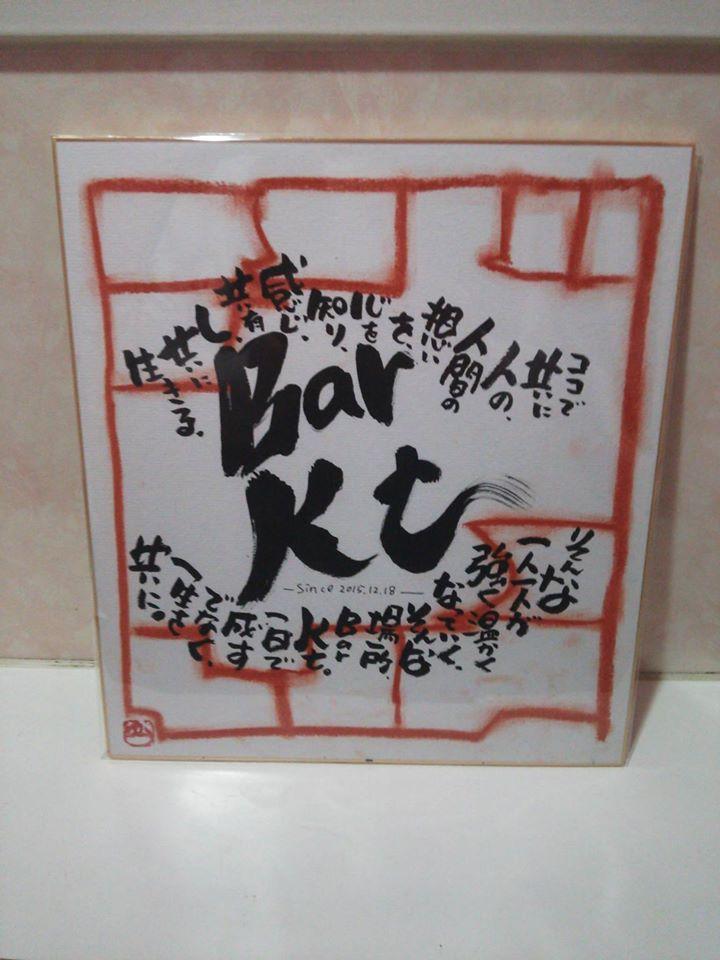 ココで
共に
人の、
人間の
想い
を、
心を
知り、
感じ、
共有
し、
共に
生きる。
Bar
Kt
—Since 2015.12.18—
そんな
一人一人が
強く温かく
なっていく、
そんな
場所、
Bar
Kt。
一日で
成す
でなく、
一生を
共に。